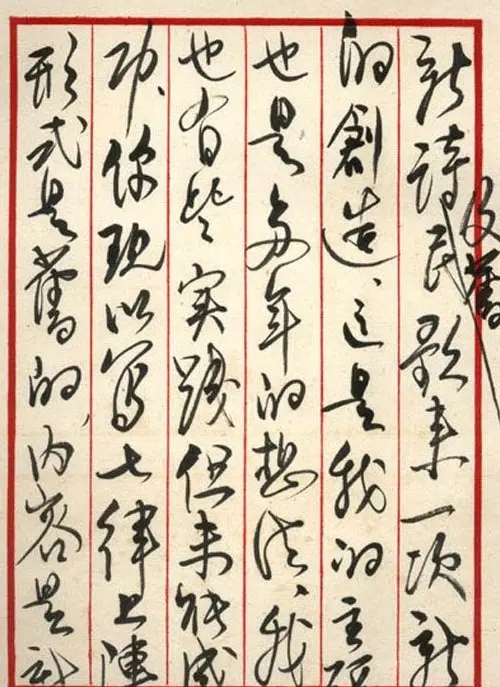 及舊
新詩民歌來一次新
的創造、这是我的主
也是多年的想法、我
也有些实踐但未能成
功、你现以写七律上陣
形式是舊的，内容是新